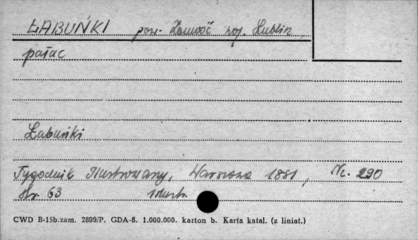 ŁABUŃKI pow. Zamość woj. Lublin
pałac
Łabuńki
Tygodnik Ilustrowany, Warszawa 1881, Nr. 290
str. 63 1 ilustr.
CWD B-15b. zam. 2899/P. GDA-8. 1.000.000. karton b. Karta katal. (z liniat.)